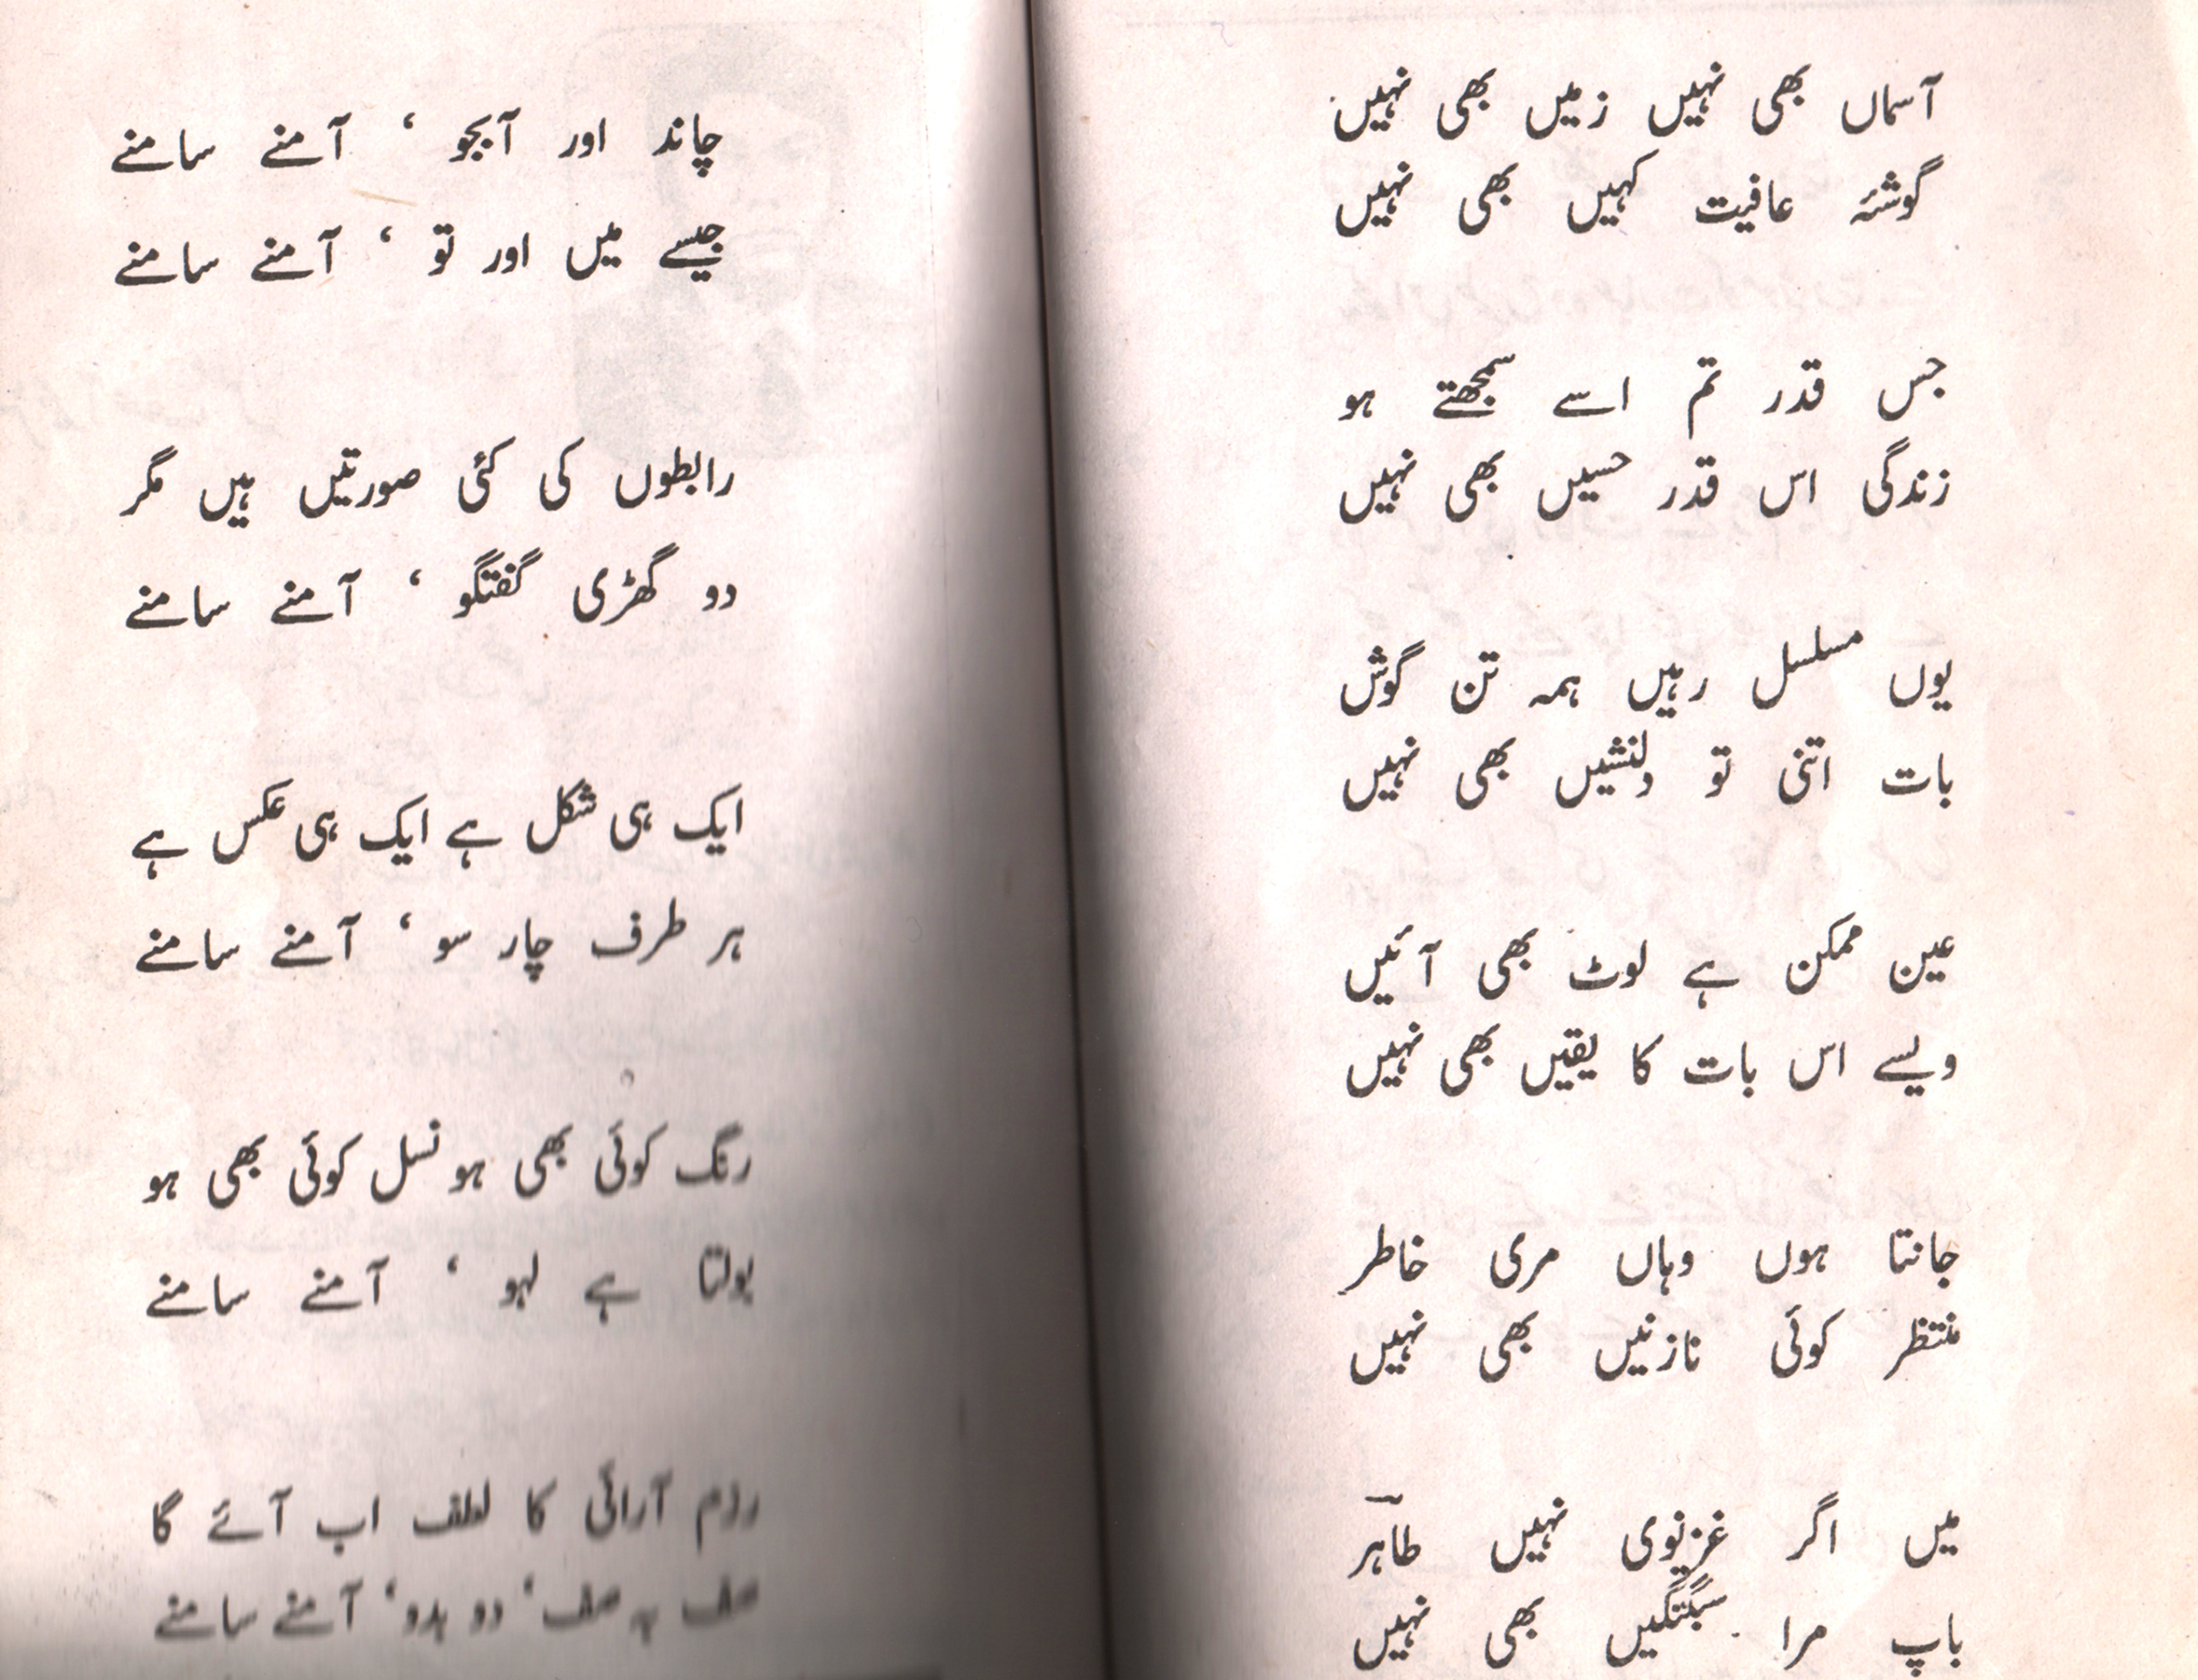 آسماں بھی نہیں زمیں بھی نہیں
گوشئہ عافیت کہیں بھی نہیں
جس قدر تم اسے سمجھتے ہو
زندگی اس قدر حسیں بھی نہیں
یوں مسلسل رہیں ہمہ تن گوش
بات اتنی تو دلنشیں بھی نہیں
عین ممکن ہے لوٹ بھی آئیں
ویسے اس بات کا یقیں بھی نہیں
جانتا ہوں وہاں مری خاطر
منتظر کوئی نازنیں بھی نہیں
میں اگر غزنوی نہیں طاہر
باپ مرا سبگتگیں بھی نہیں
چاند اور آبجو ‘ آمنے سامنے
جیسے میں اور تو ‘ آمنے سامنے
رابطوں کی کئی صورتیں ہیں مگر
دو گھڑی گفتگو ‘ آمنے سامنے
ایک ہی شکل ہے ایک ہی عکس ہے
ہر طرف چار سو ‘ آمنے سامنے
رنگ کوئی بھی ہو نسل کوئی بھی ہو
بولتا ہے لہو ‘ آمنے سامنے
رزم آرائی کا لطف اب آئے گا
صف بہ صف‘ دو بدو‘ آمنے سامنے